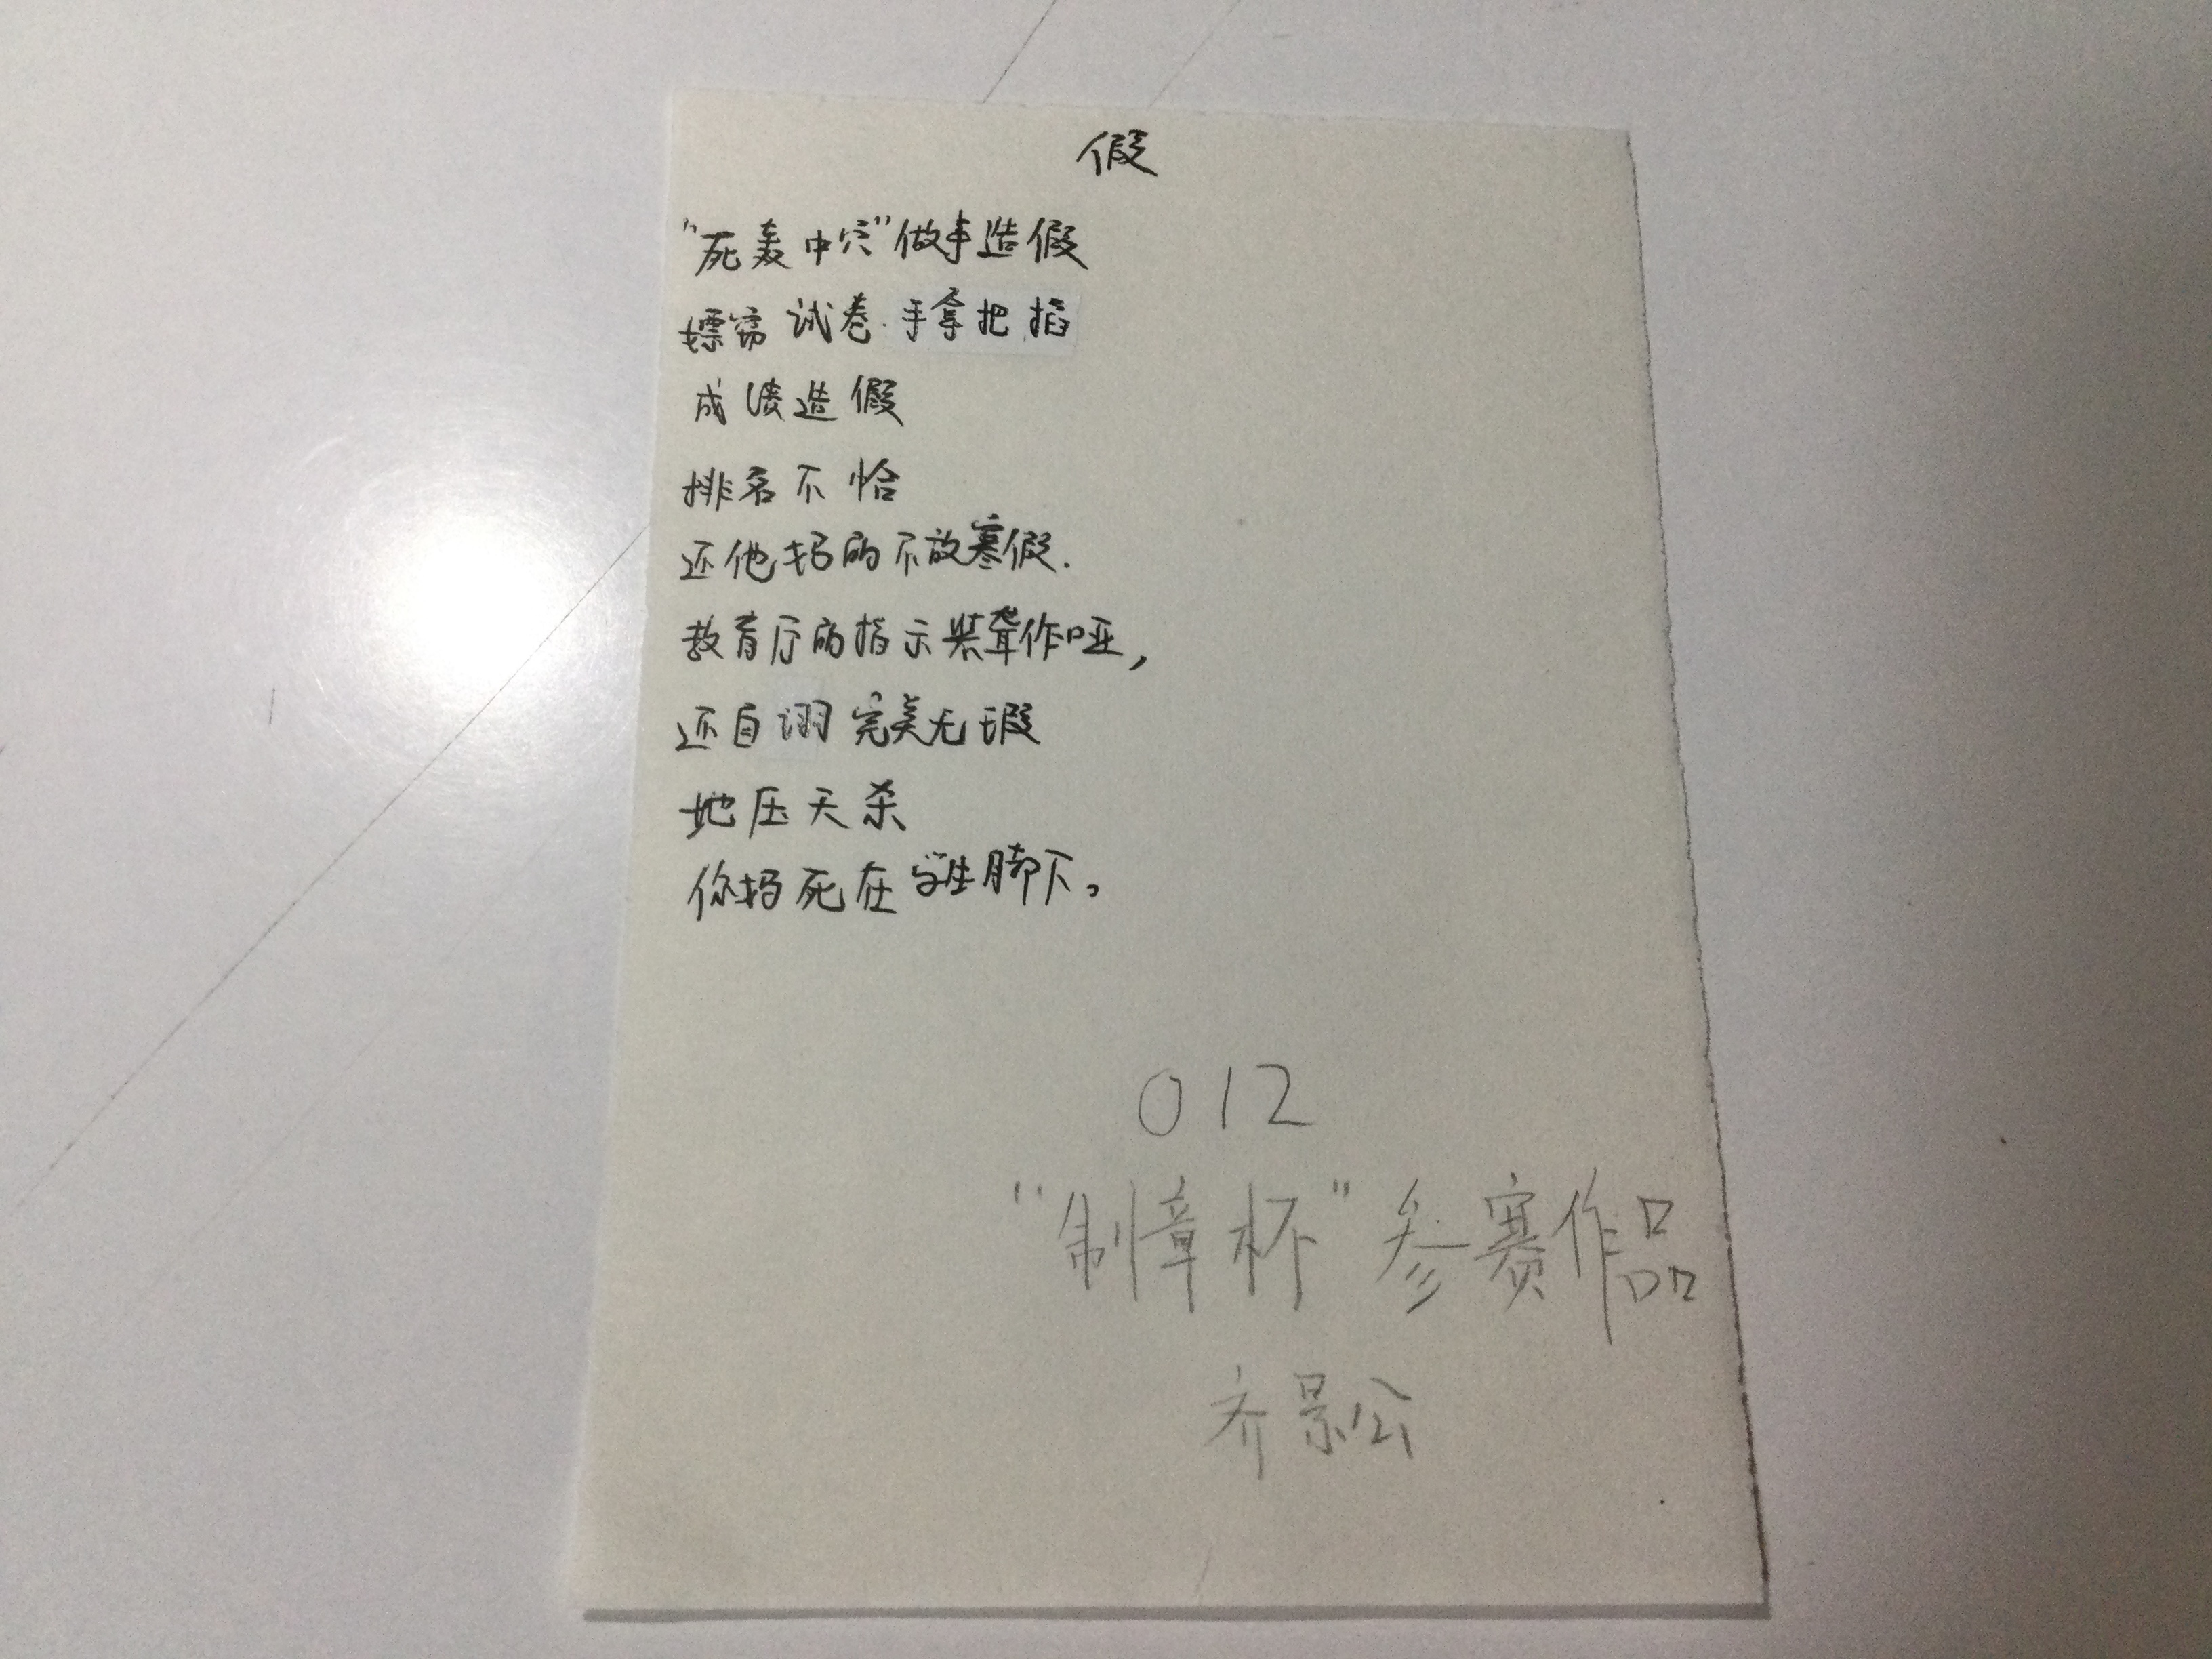 假
"死轰中穴"做事造假
嫖窃试卷.手拿把掐
成绩造假
排名不恰
还他妈的不放寒假.
教育厅的指示装聋作哑,
还自诩完美无瑕
地压天杀
你妈死在学生脚下。
012
"制章杯"参赛作品
齐景公